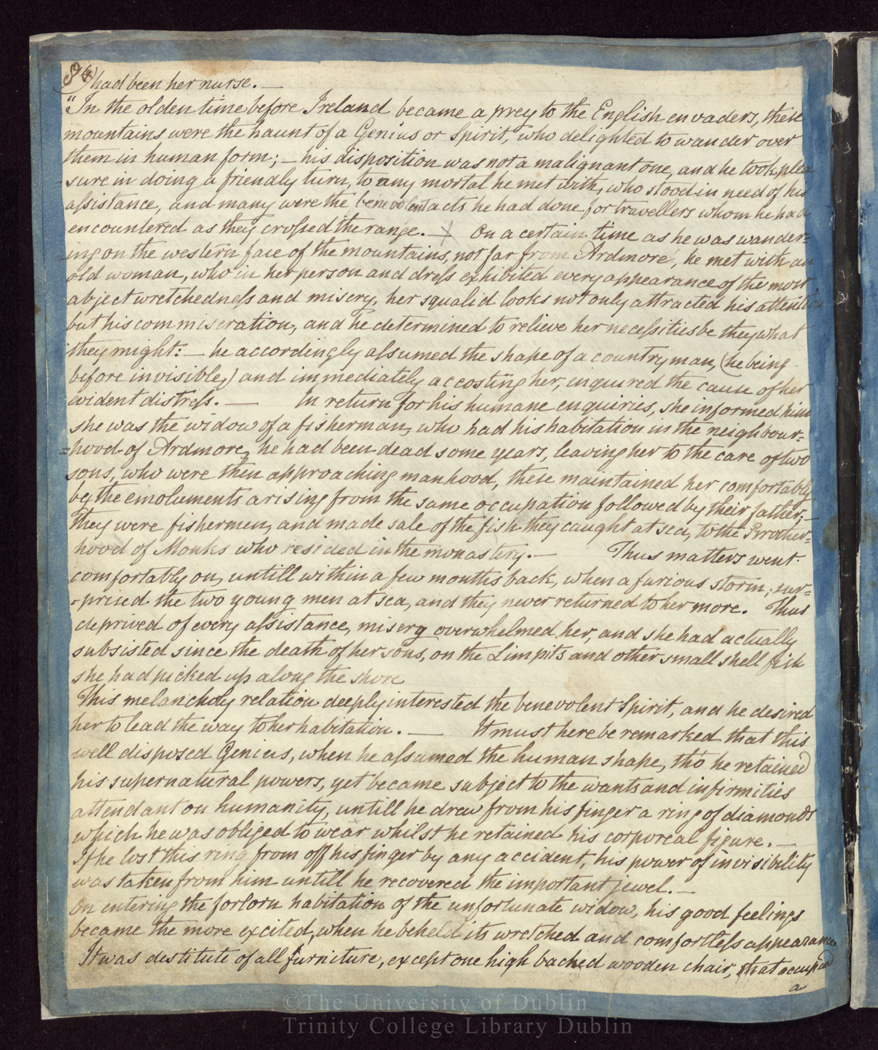 84) had been her nurse. —
"In the olden time before Ireland became a prey to the English envaders, these
mountains were the haunt of a Genius or Spirit, who delighted to wander over
them in human form; — his disposition was not a malignant one, and he took plea
sure in doing a friendly turn, to any mortal he met with, who stood in need of his
assistance, and many were the benevolent acts he had done for travellers whom he had
encountered as they crossed the range. — X On a certain time as he was wander=
=ing on the western face of the mountains, not far from Ardmore, he met with an
old woman, who in her person and dress exhibited every appearance of the most
abject wretchedness and misery, her squalid looks not only attracted his attention
but his commiseration, and he determined to relieve her necessities be they what
they might: — he accordingly assumed the shape of a country man, (he being
before invisible,) and immediately accosting her, inquired the cause of her
evident distress. — In return for his humane enquiries, she informed him
she was the widow of a fisherman, who had his habitation in the neighbour=
=hood of Ardmore, he had been dead some years, leaving her to the care of two
sons, who were then approaching manhood, these maintained her comfortably
by the emoluments arising from the same occupation followed by their father,—
they were fishermen, and made sale of the fish they caught at sea, to the Brother=
hood of Monks who resided in the monastery. — Thus matters went
comfortably on, untill within a few months back, when a furious storm, sur=
=prised the two young men at sea, and they never returned to her more. Thus
deprived of every assistance, misery overwhelmed her, and she had actually
subsisted since the death of her sons, on the Limpits and other small shell fish
she had picked up along the shore
This melancholy relation deeply interested the benevolent Spirit, and he desired
her to lead the way to her habitation. — It must here be remarked that this
well disposed Genius, when he assumed the human shape, tho' he retained
his supernatural powers, yet became subject to the wants and infirmities
attendant on humanity, untill he drew from his finger a ring of diamonds
which he was obliged to wear whilst he retained his corporeal figure. —
If he lost this ring from off his finger by any accident, his power of invisibility
was taken from him untill he recovered the important jewel. —
On entering the forlorn habitation of the unfortunate widow, his good feelings
became the more excited, when he beheld its wretched and comfortless appearance
It was destitute of all furniture, except one high backed wooden chair, that occupied
a
©The University of Dublin
Trinity College Library Dublin